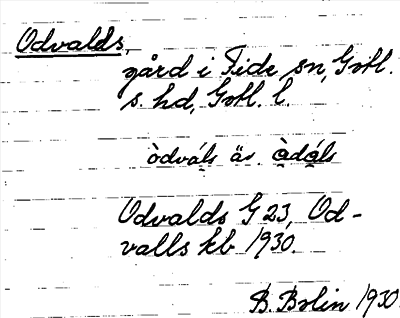 Odvalds,
gård i Fide sn, Gotl.
s. hd, Gotl. l.
òdváls äv. òdǻls
Odvalds G 23, Od-
valls kb 1930.
B. Bolin 1930.